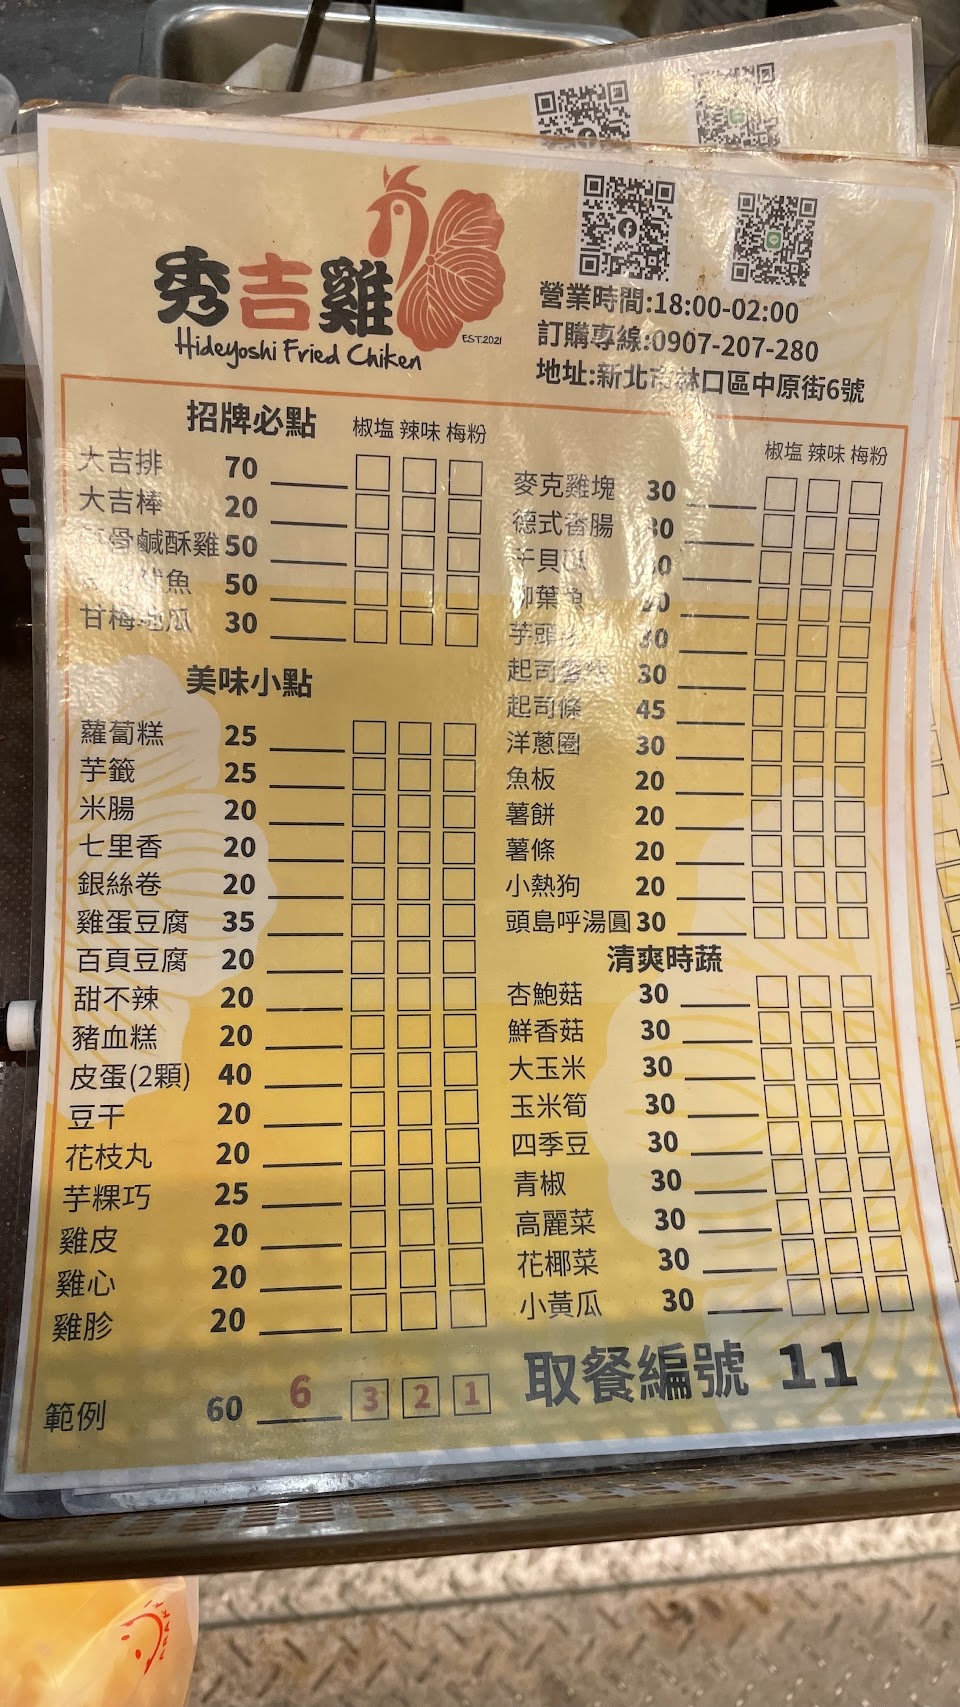 秀吉雞
Hideyoshi Fried Chiken
EST.2021
營業時間:18:00-02:00
訂購專線:0907-207-280
地址:新北市林口區中原街6號
招牌必點 椒塩 辣味 梅粉
大吉排 70
大吉棒 20
骨鹹酥雞 50
魚 50
甘梅地瓜 30
美味小點
蘿蔔糕 25
芋籤 25
米腸 20
七里香 20
銀絲卷 20
雞蛋豆腐 35
百頁豆腐 20
甜不辣 20
豬血糕 20
皮蛋(2顆) 40
豆干 20
花枝丸 20
芋粿巧 25
雞皮 20
雞心 20
雞胗 20
範例 60 6 3 2 1
椒塩 辣味 梅粉
麥克雞塊 30
德式香腸 30
干貝
柳葉魚
芋頭 30
起司 30
起司條 45
洋蔥圈 30
魚板 20
薯餅 20
薯條 20
小熱狗 20
頭島呼湯圓 30
清爽時蔬
杏鮑菇 30
鮮香菇 30
大玉米 30
玉米筍 30
四季豆 30
青椒 30
高麗菜 30
花椰菜 30
小黃瓜 30
取餐編號 11